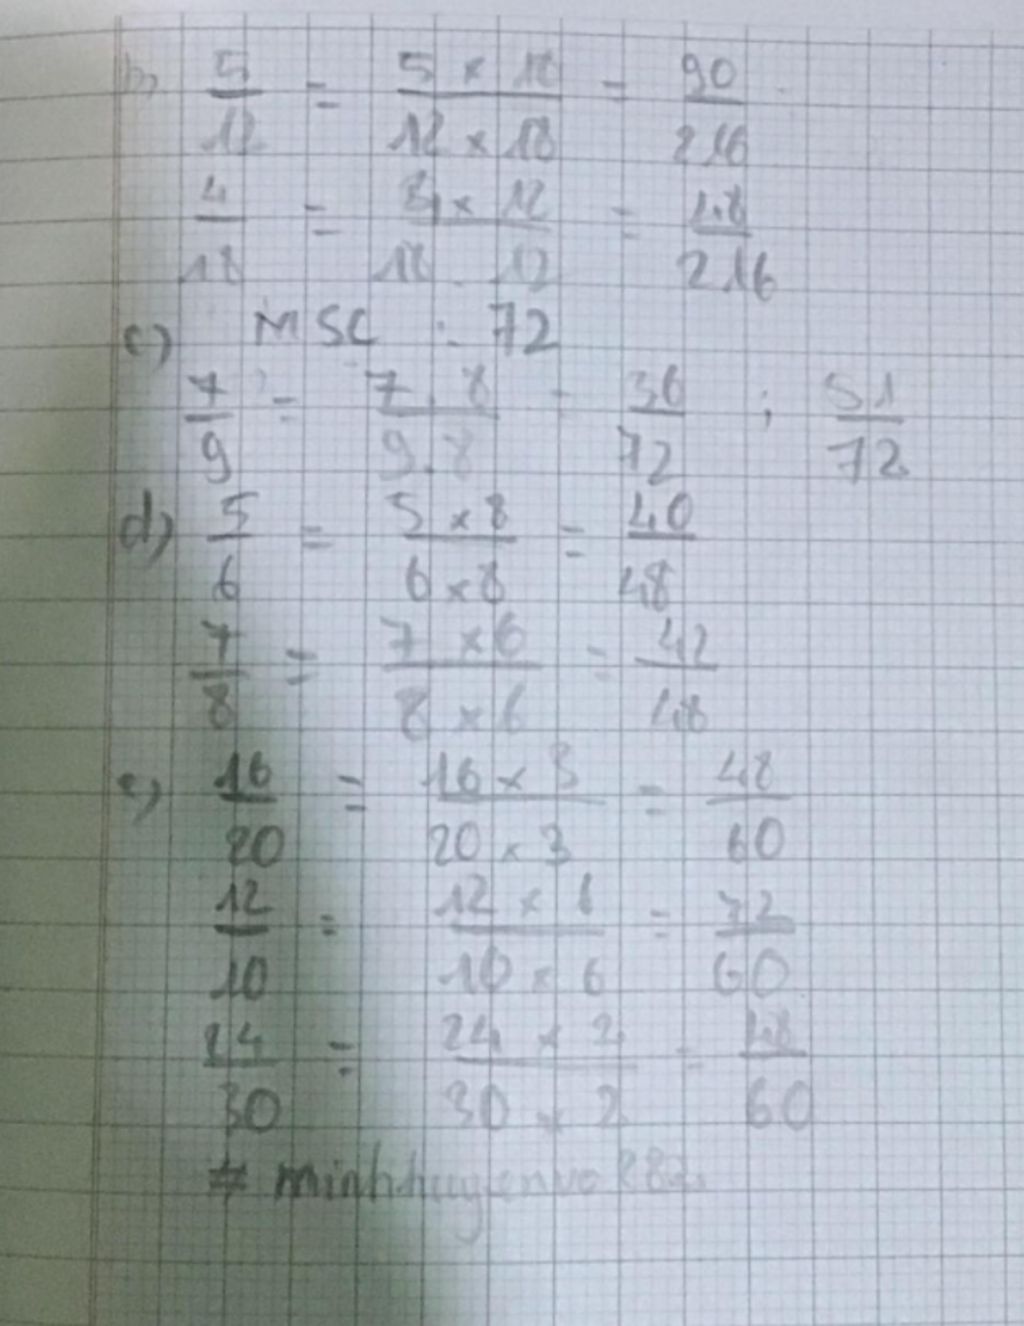 b) 5/12 = 5 × 18 / 12 × 18 = 90/216
4/18 = 4 × 12 / 18 . 12 = 48/216
c) MSC : 72
7/9 = 7.8 / 9.8 = 36/72 ; 51/72
d) 5/6 = 5 × 8 / 6 × 8 = 40/48
7/8 = 7 × 6 / 8 × 6 = 42/48
e) 16/20 = 16 × 3 / 20 × 3 = 48/60
12/10 = 12 × 6 / 10 × 6 = 72/60
24/30 = 24 × 2 / 30 × 2 = 48/60